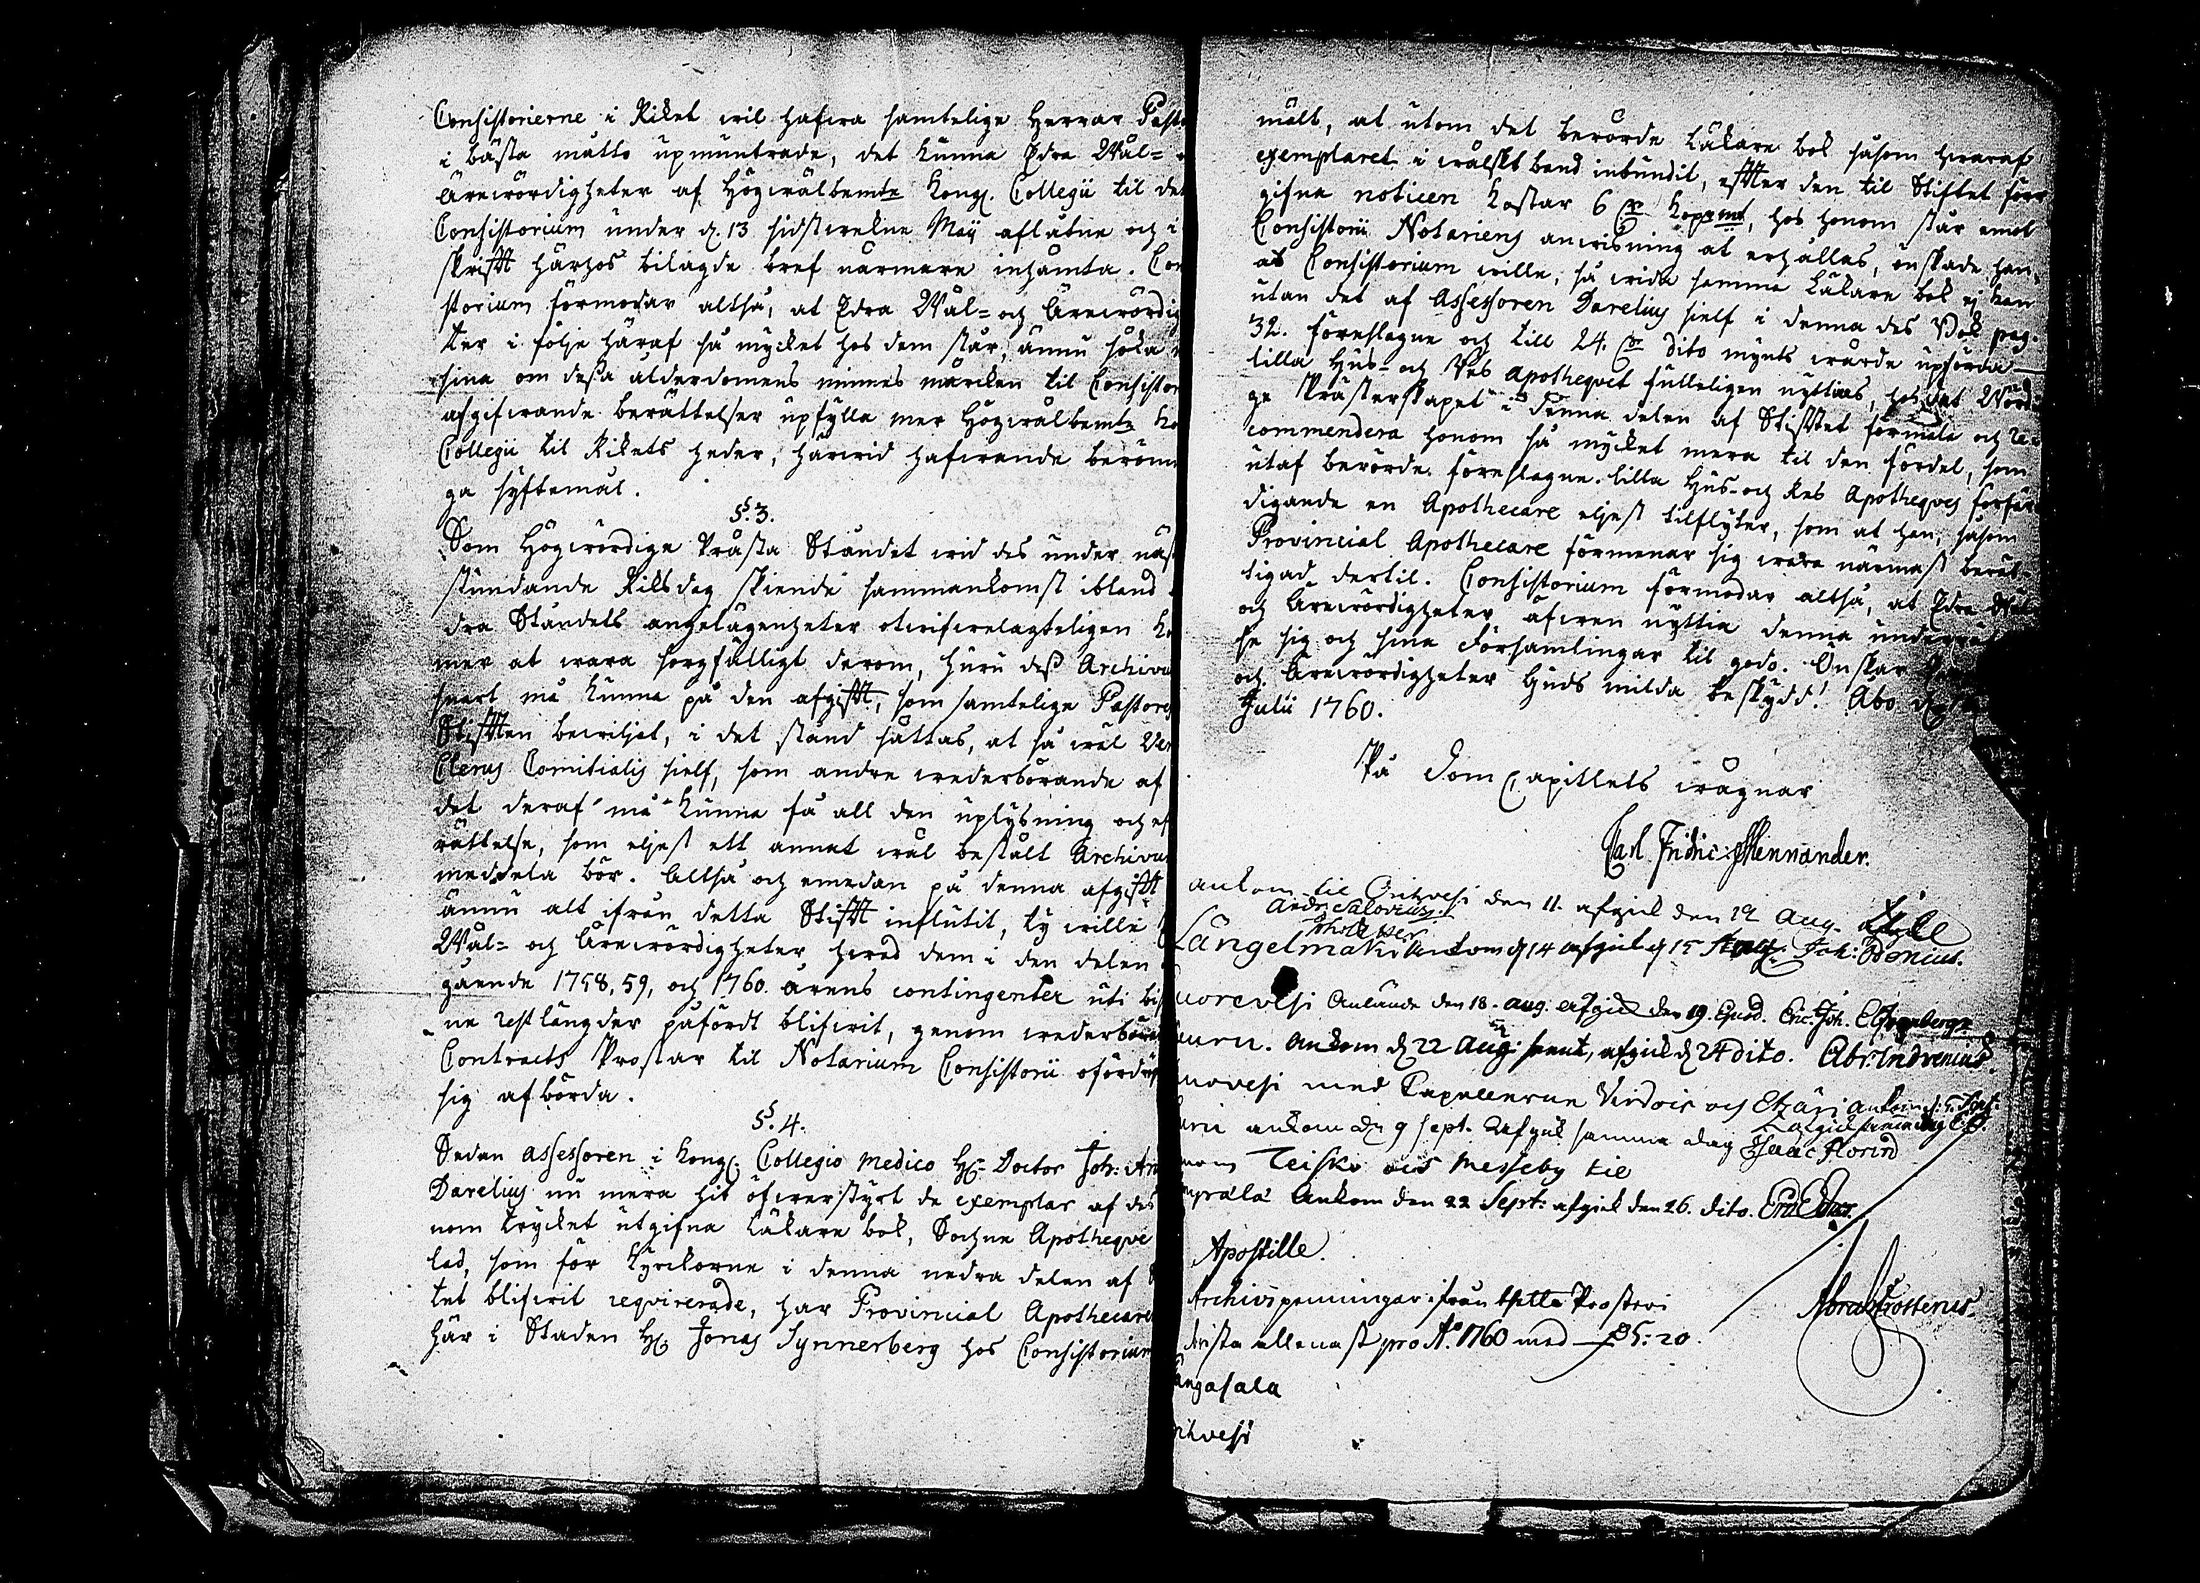 Consistorierne i Riket wil hafwa samtelige Herrar Past
i bästa motto upmuntrade, det kunna Edra Wäl=
Ärewördigheter af Högwälbemte Kongl. Collegii til det
Consistorium under d. 13 sidstwekne Maji aflåtne och i
skrifft härhos bilagde bref närmare inhämta. Con
storium förmodar altså, at Edra Wäl= och Ärewördig
ter i följe häraf så mycket hos dem står, ännu söka
sina om dessa ålderdomens minnes märcken til Consistor
afgifwande berättelser upfylla mer Högwälbemte Ko
Collegii til Rikets heder, härwid hafwande beröm
ga syftemål.
§. 3.
Som Högwördige Präste Ståndet wid des under näst
stundande Riksdag skiende sammankomst ibland
dra Ståndets angelägenheter otwifwelagteligen ko
mer at wara sorgfälligt derom, huru dess Archivu
snart må kunna på den afgifft, som samtelige Pastores
Stifften bewiljat, i det stånd sättas, at så wäl Ven
Clerus Comitialis sielf, som andre wederbörande af
det deraf må kunna få all den uplysning och ef
rättelse, som eljest ett annat wäl bestält Archivu
meddela bör. Altså och emedan på denna afgifft
ännu alt ifrån detta Stifft influtit, ty wille
Wäl= och Ärewördigheter, hwad dem i den delen
gående 1758, 59, och 1760. årens contingenter uti bi
ne restlängder påfördt blifwit, genom wederböran
Contracts Prostar til Notarium Consistorii ofördröj
sig afbörda.
§. 4.
Sedan Assessoren i Kongl. Collegio Medico H. Doctor Joh: An
Darelius nu mera hit öfwerstyrt de exemplar af des
nom trycket utgifna Läkare bok, Sockne Apotheque
lad, som för Kyrckorne i denna nedra delen af
tet blifwit requirerade, har Provincial Apothecare
här i Staden H. Jonas Synnerberg hos Consistorium
mält, at utom det berörde Läkare bok såsom hwaraf
exemplaret i wälskt band inbundit, effter den til Stiftet förr
gifna noticen kostar 6 Dr Koparmt, hos honom står emot
Consistorii Notariens anwisning at erhållas, önskade han,
at Consistorium wille, så wida samma Läkare bok ej kan
utan det af Assessoren Darelius sielf i denna des Bok pag.
32. föreslagne och till 24. Dr dito mynts wärde upförda
lilla Hus= och Res Apothequet fulleligen nyttias, hos det Wörd
ge Prästerskapet i denna delen af Stifftet förmäla och re
commendera honom så mycket mera til den fördel, som
utaf berörde föreslagne lilla Hus= och Res Apotheques förfär
digande en Apothecare eljest tilflyter, som at han, såsom
Provincial Apothecare förmenar sig wara närmast berät=
tigad dertil. Consistorium förmodar altså, at Edra Wäl
och Ärewördigheter äfwen nyttia denna underrät
se sig och sina Församlingar til godo. Önskar
och Ärewördigheter Guds milda beskydd! Åbo d.
Julii 1760.
På Dom Capitlets wägnar
Carl Fridric: Mennander.
ankom til Orihvesi den 11. afgick den 12 Aug.
Andr: Salovius
Längelmäki ankom d 14 afgick d 15 Aug. Joh: Odenius.
uorevesi Anlände den 18. aug. afgick den 19. Ejusd. Eric: Joh.
auru. ankom d 22 Aug: sent, afgick d 24 dito. Abr: Indrenius.
uovesi med Capellerne Virdois och Etzäri ankom d. 5. Sept.
afgick samma dag
uru ankom d 9 Sept. afgick samma dag Isaac Florin
nom Teisko och Messeby til
mprälä Ankom den 22 Sept: afgick den 26. dito.
Apostille.
Archivspenningar ifrån detta Prosteri
brista allenast pro Ao. 1760 med 5: 20.
Abrah: Frosterus.
angasala
rihvesi